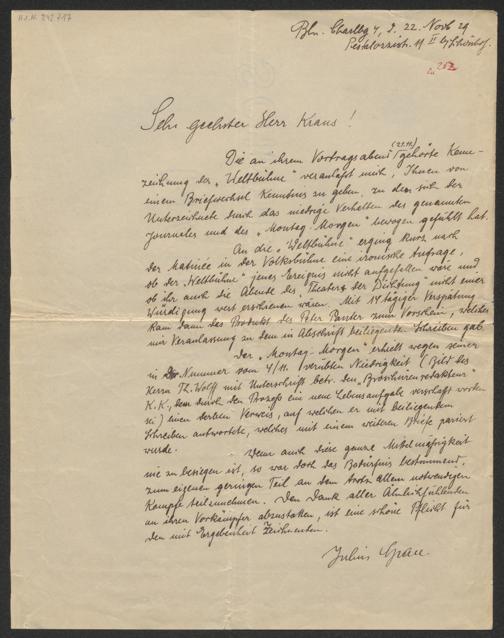 H.I.N. 242.717
Bln. Charlbg 4, d. 22. Novb 29
Pestalozzistr. 11 II b/
zu 252
Sehr geehrter Herr Kraus!
Die an ihrem Vortragsabend (21.11.) gehörte Kenn-
zeichnung der „Weltbühne" veranlaßt mich, Ihnen von
einem Briefwechsel Kenntnis zu geben, zu dem sich der
Unterzeichnete durch das niedrige Verhalten des genannten
Journales und des „Montag-Morgen" bewogen gefühlt hat.
An die „Weltbühne" erging kurz nach
der Matinée in der Volksbühne eine ironische Anfrage,
ob der „Weltbühne" jenes Ereignis nicht aufgefallen wäre und
ob ihr auch die Abende des Theaters der Dichtung nicht einer
Würdigung wert erschienen wären. Mit 14tägiger Verspätung
kam dann das Produkt des Peter Panter zum Vorschein, welches
mir Veranlassung zu dem in Abschrift beiliegenden Schreiben gab.
Der „Montag-Morgen" erhielt wegen seiner
in der Nummer vom 4/11. verübten Niedrigkeit (Bild des
Herrn Th. Wolff mit Unterschrift betr. den „Broschürenredakteur"
K.K., dem durch den Prozeß eine neue Lebensaufgabe verschafft worden
sei) einen derben Verweis, auf welchen er mit beiliegendem
Schreiben antwortete, welches mit einem weiteren Briefe pariert
wurde.
Wenn auch diese ganze Mittelmäßigkeit
nie zu besiegen ist, so war doch das Bedürfnis bestimmend,
zum eigenen geringen Teil an dem trotz allem notwendigen
Kampfe teilzunehmen. Den Dank aller Ähnlichfühlenden
an ihren Vorkämpfer abzustatten, ist eine schöne Pflicht für
den mit Ergebenheit Zeichnenden.
Julius